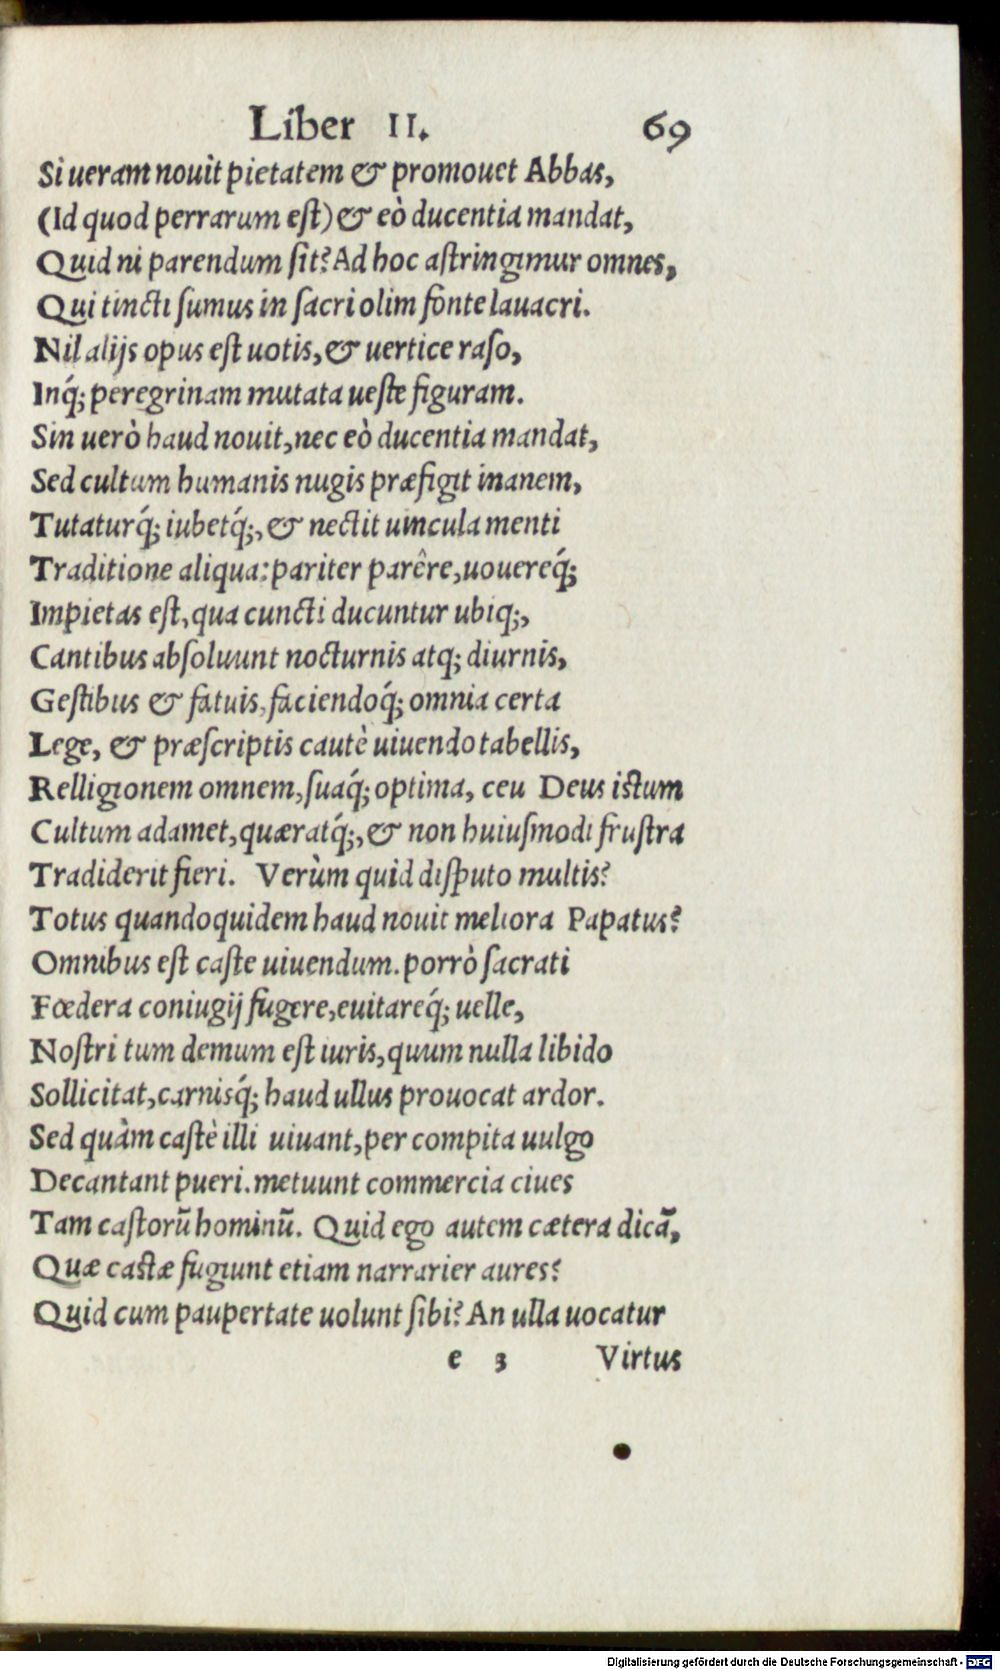 Liber II. 69
Si ueram nouit pietatem & promouet Abbas,
(Id quod perrarum est) & eò ducentia mandat,
Quid ni parendum sit? Ad hoc astringimur omnes,
Qui tincti sumus in sacri olim fonte lauacri.
Nil alijs opus est uotis, & uertice raso,
Inq́; peregrinam mutata ueste figuram.
Sin uerò haud nouit, nec eò ducentia mandat,
Sed cultum humanis nugis præfigit inanem,
Tutaturq́; iubetq́;, & nectit uincula menti
Traditione aliqua: pariter parêre, uouereq́;
Impietas est, qua cuncti ducuntur ubiq;,
Cantibus absoluunt nocturnis atq; diurnis,
Gestibus & fatuis, faciendoq́; omnia certa
Lege, & præscriptis cautè uiuendo tabellis,
Relligionem omnem, suaq́; optima, ceu Deus istum
Cultum adamet, quæratq́;, & non huiusmodi frustra
Tradiderit fieri. Verùm quid disputo multis?
Totus quandoquidem haud nouit meliora Papatus?
Omnibus est caste uiuendum. porrò sacrati
Fœdera coniugij fugere, euitareq́; uelle,
Nostri tum demum est iuris, quum nulla libido
Sollicitat, carnisq́; haud ullus prouocat ardor.
Sed quàm castè illi uiuant, per compita uulgo
Decantant pueri. metuunt commercia ciues
Tam castorū hominū. Quid ego autem cætera dicā,
Quæ castæ fugiunt etiam narrarier aures?
Quid cum paupertate uolunt sibi? An ulla uocatur
e 3 Virtus
Digitalisierung gefördert durch die Deutsche Forschungsgemeinschaft - DFG